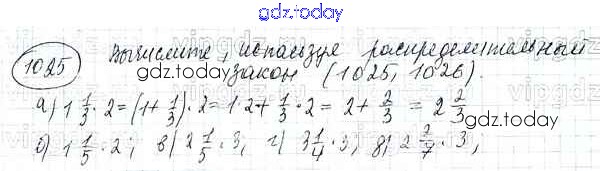 gdz.today
1025 Вычислите, используя распределительный
gdz.today
закон (1025, 1026).
а) 1 1/3 · 2 = (1 + 1/3) · 2 = 1 · 2 + 1/3 · 2 = 2 + 2/3 = 2 2/3
б) 1 1/5 · 2, в) 2 1/5 · 3, г) 3 1/4 · 3, д) 2 2/7 · 3,
gdz.today